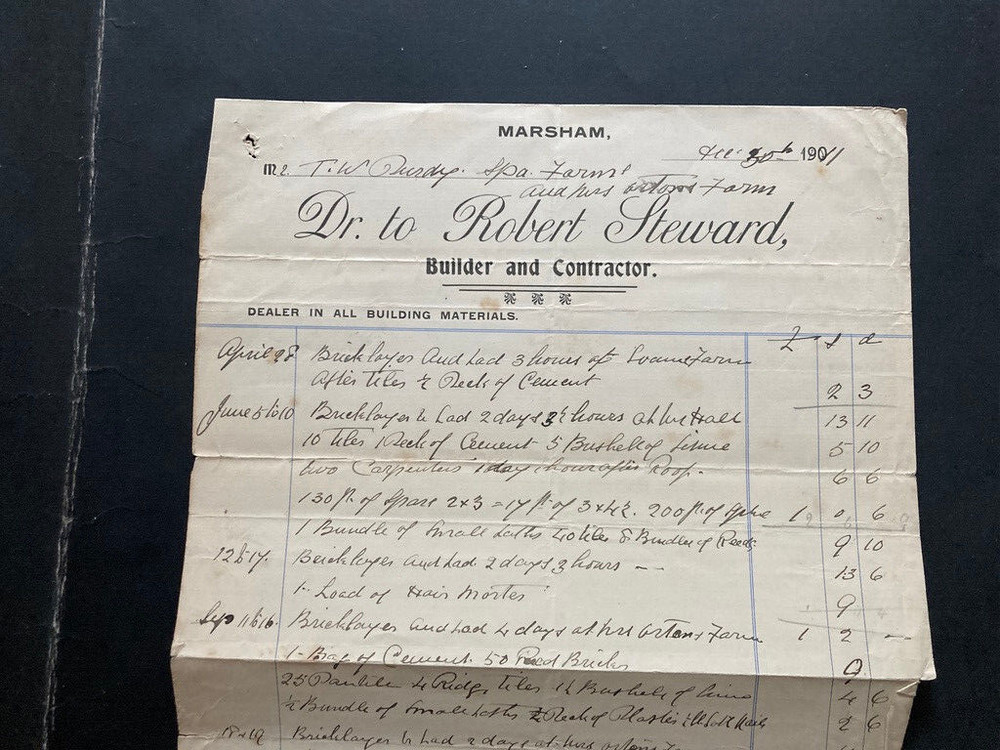 MARSHAM,
Dec 30th 1901
Mr. T. W Purdy. Spa Farm
and Mrs Ortons Farm
Dr. to Robert Steward,
Builder and Contractor.
DEALER IN ALL BUILDING MATERIALS.
£ s d
April 28 Bricklayer and Lad 3 hours at Farm
After tiles ½ Peck of Cement 2 3
June 5 to 10 Bricklayer & Lad 2 days 3½ hours at 13 11
10 tiles 1 Peck of Cement 5 Bushell of Lime 5 10
two Carpenters 1 day 1 hour after Roof. 6 6
130 ft. of Spars 2x3 = 17 ft of 3x4½. 200 ft. of 1 0 6
1 Bundle of Small Laths 40 tiles 8 Bundles of Reeds 9 10
12 to 17. Bricklayer and Lad 2 days 3 hours -- 13 6
1. Load of Hair Morter 9
Sep 11 to 16. Bricklayer and Lad 4 days at Mrs Ortons Farm 1 2 –
1 Bag of Cement. 50 Red Bricks 9
25 Pantiles 4 Ridge tiles 1½ Bushells of Lime 4 6
½ Bundle of Small Laths ½ Peck of Plaster Nails 2 6
18 & 19 Bricklayer & Lad 2 days at Mrs Ortons